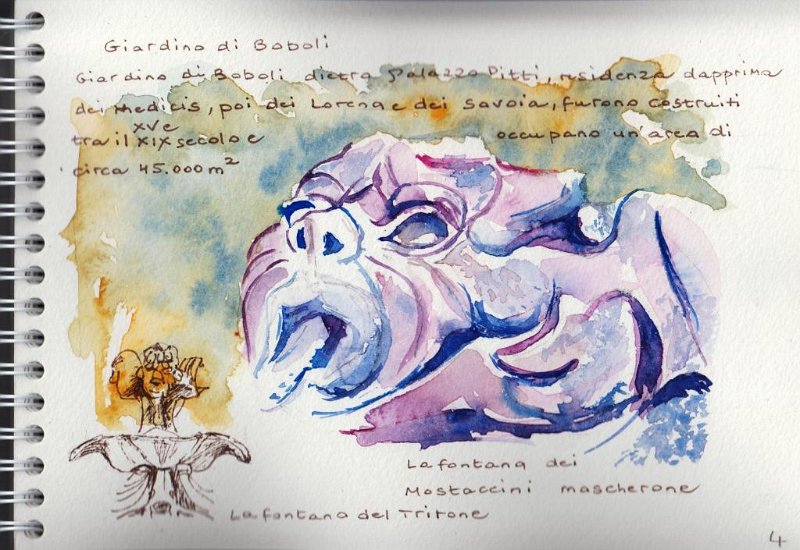 Giardino di Boboli
Giardino di Boboli dietro Palazzo Pitti, residenza dapprima
dei Medicis, poi dei Lorena e dei Savoia, furono costruiti
tra il XVe XIX secolo e occupano un'area di
circa 45.000 m²
La fontana dei
Mostaccini mascherone
La fontana del Tritone
4